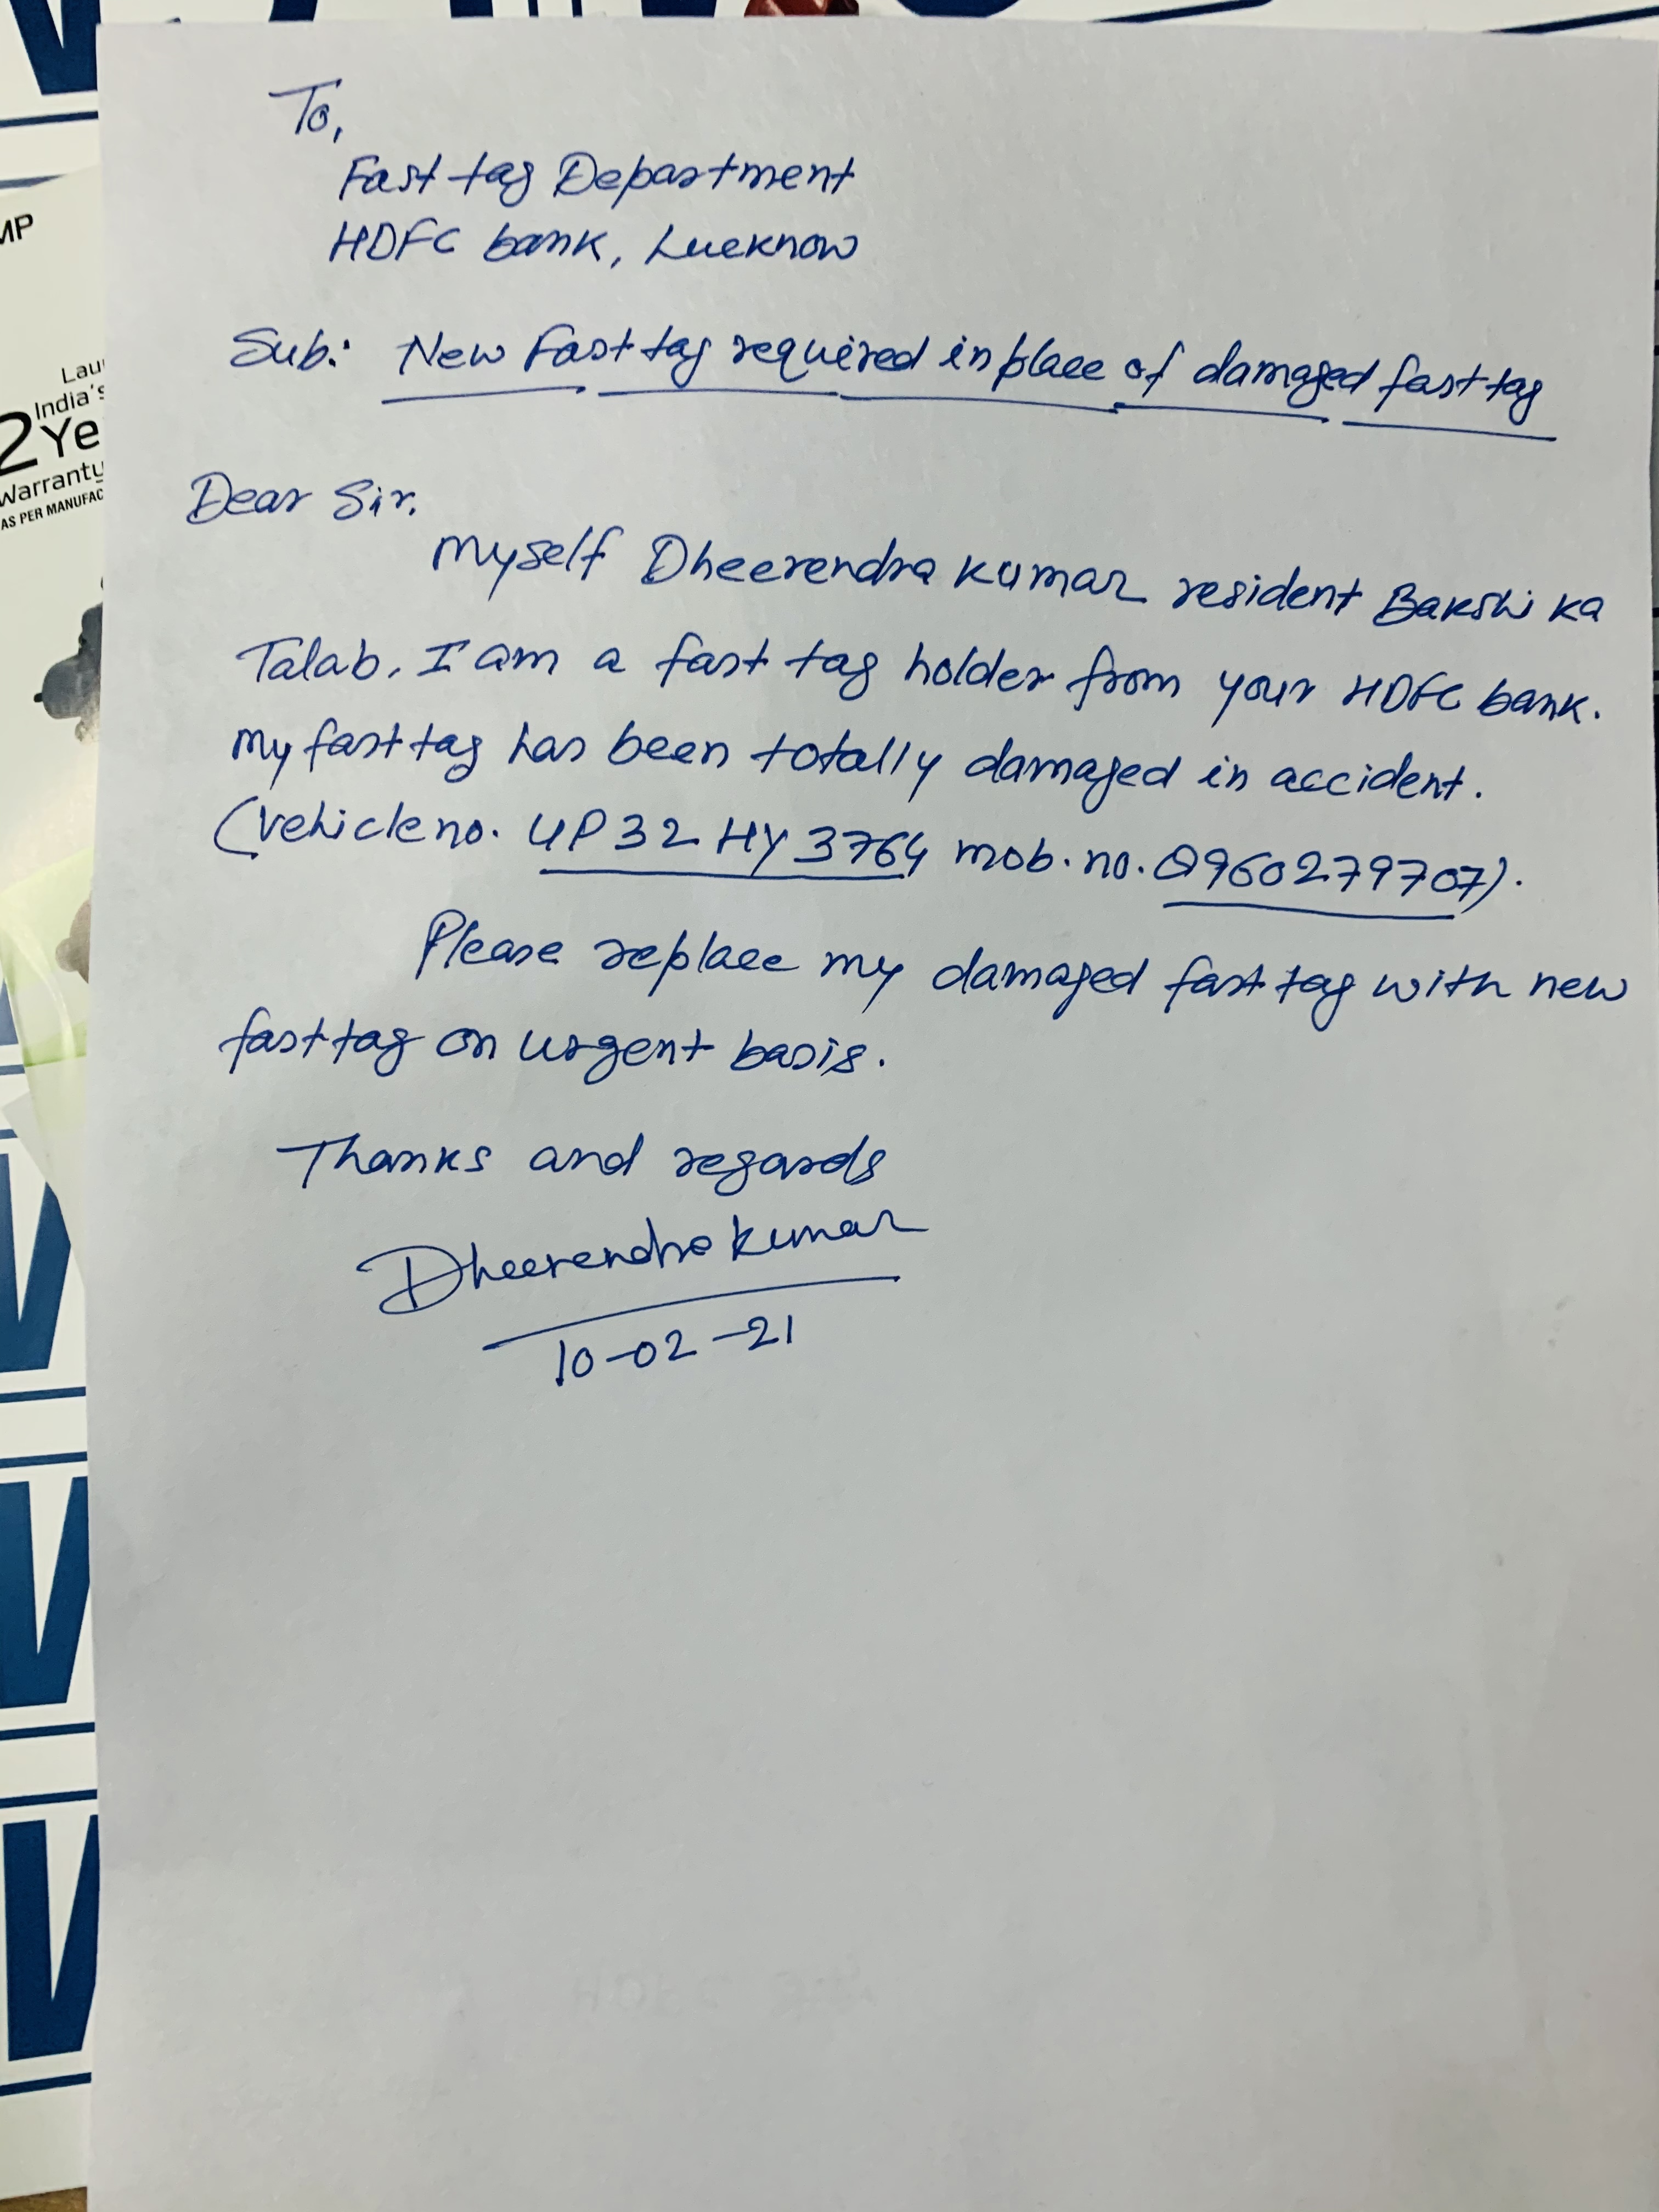 To,
Fast tag Department
HDFC bank, Lucknow
Sub: New Fast tag required in place of damaged fast tag
Dear Sir.
Myself Dheerendra Kumar resident Bakshi ka
Talab. I am a fast tag holder from your HDFC bank.
My fast tag has been totally damaged in accident.
(Vehicle no. UP 32 HY 3764 mob. no. 9960279707).
Please replace my damaged fast tag with new
fast tag on urgent basis.
Thanks and regards
Dheerendra Kumar
10-02-21
MP
Lau
India's
2 Ye
Warranty
AS PER MANUFAC